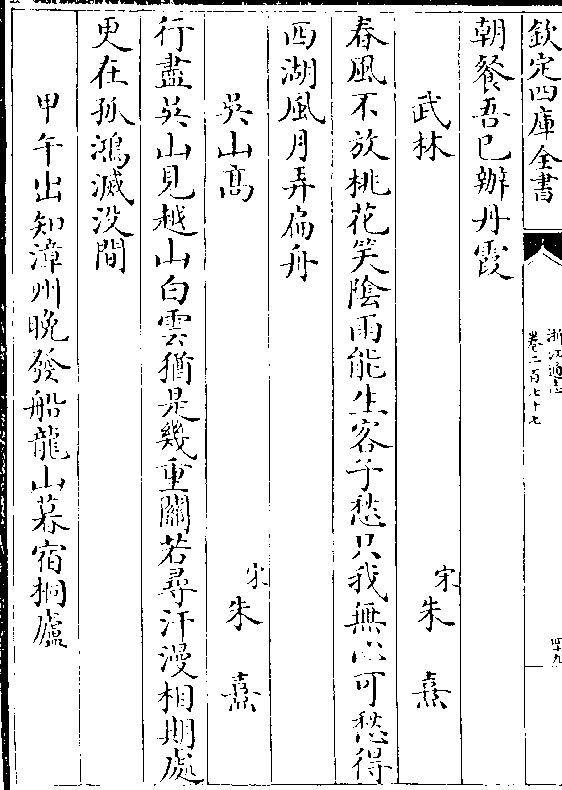 欽定四庫全書
浙江通志
卷二百七十七
四十九
朝餐吾已辦丹霞
武林
宋朱熹
春風不放桃花笑陰雨能生客子愁只我無心可愁得
西湖風月弄扁舟
吳山髙
宋朱熹
行盡吳山見越山白雲猶是幾重關若尋汗漫相期處
更在孤鴻滅没間
甲午出知漳州晩發船龍山暮宿桐廬